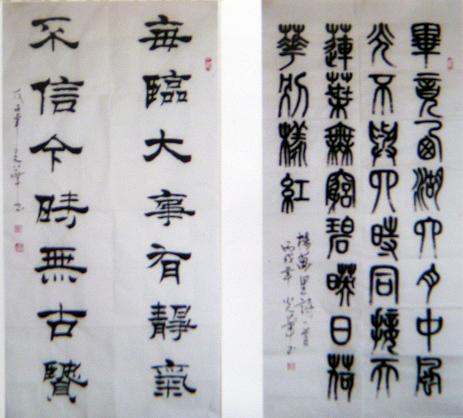 畢竟西湖六月中風
光不與四時同接天
蓮葉無窮碧映日荷
華別樣紅
楊萬里詩一首
丙戌年
每臨大事有靜氣
不信今時無古賢